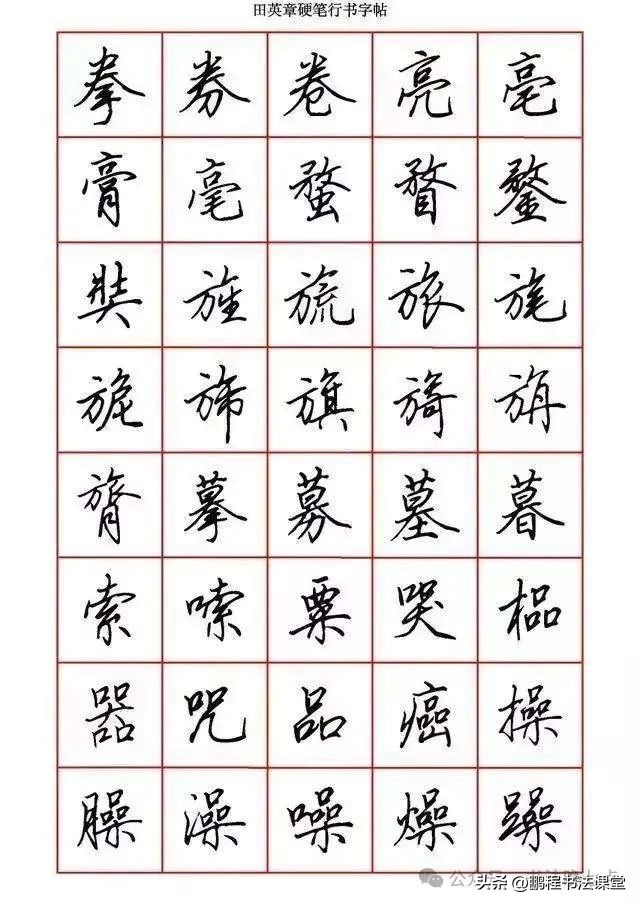 田英章硬笔行书字帖
拳 券 卷 亮 亳
膏 毫 蝥 瞀 鍪
奘 旌 旒 旅 旄
旎 旆 旗 旖 旃
膂 摹 募 墓 暮
索 嗦 粟 哭 榀
器 咒 品 癌 操
臊 澡 噪 燥 躁
头条 @鹏程书法课堂